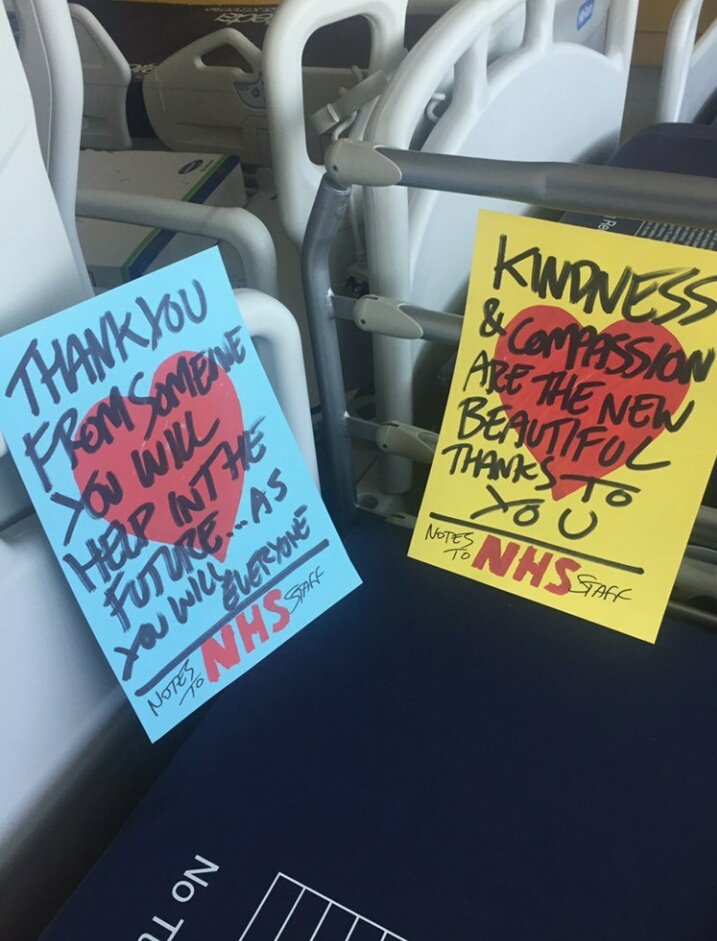 THANK YOU
FROM SOMEONE
YOU WILL
HELP IN THE
FUTURE... AS
YOU WILL EVERYONE
NOTES
TO NHS STAFF
KINDNESS
& COMPASSION
ARE THE NEW
BEAUTIFUL
THANKS TO
YOU
NOTES
TO NHS STAFF